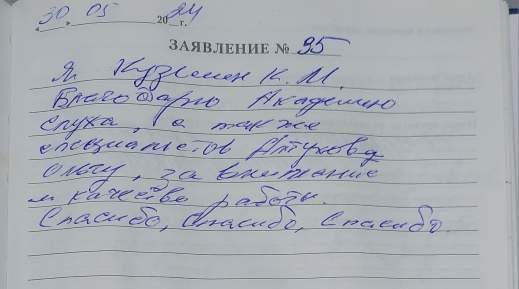 30 05 2024 г.
ЗАЯВЛЕНИЕ № 95
Я Кузьмин К. М.
Благодарю Академию
слуха, а также
специалистов
Ольгу, за внимание
и качество работы.
Спасибо, Спасибо, Спасибо.